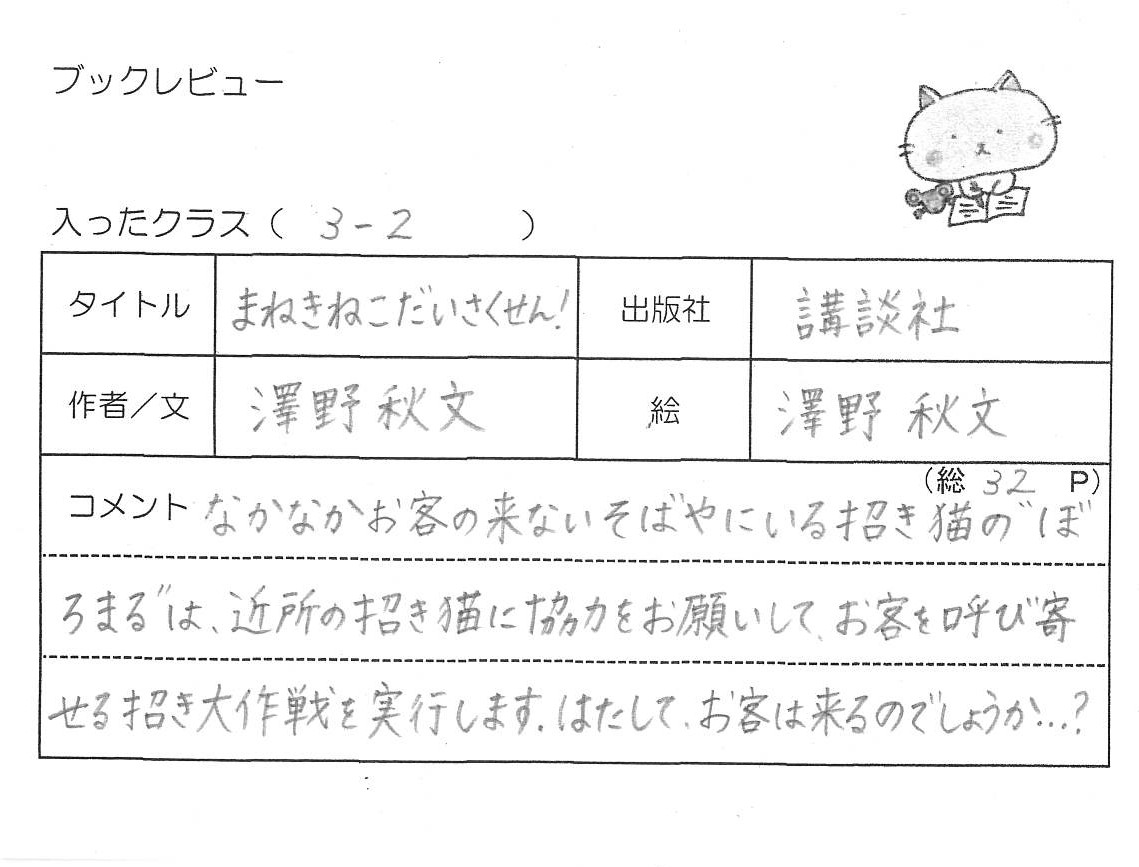 ブックレビュー
入ったクラス（ 3-2 ）
タイトル まねきねこだいさくせん! 出版社 講談社
作者／文 澤野秋文 絵 澤野 秋文
（総 32 P）
コメント なかなかお客の来ないそばやにいる招き猫の"ぼ
ろまる"は、近所の招き猫に協力をお願いして、お客を呼び寄
せる招き大作戦を実行します。はたして、お客は来るのでしょうか…?